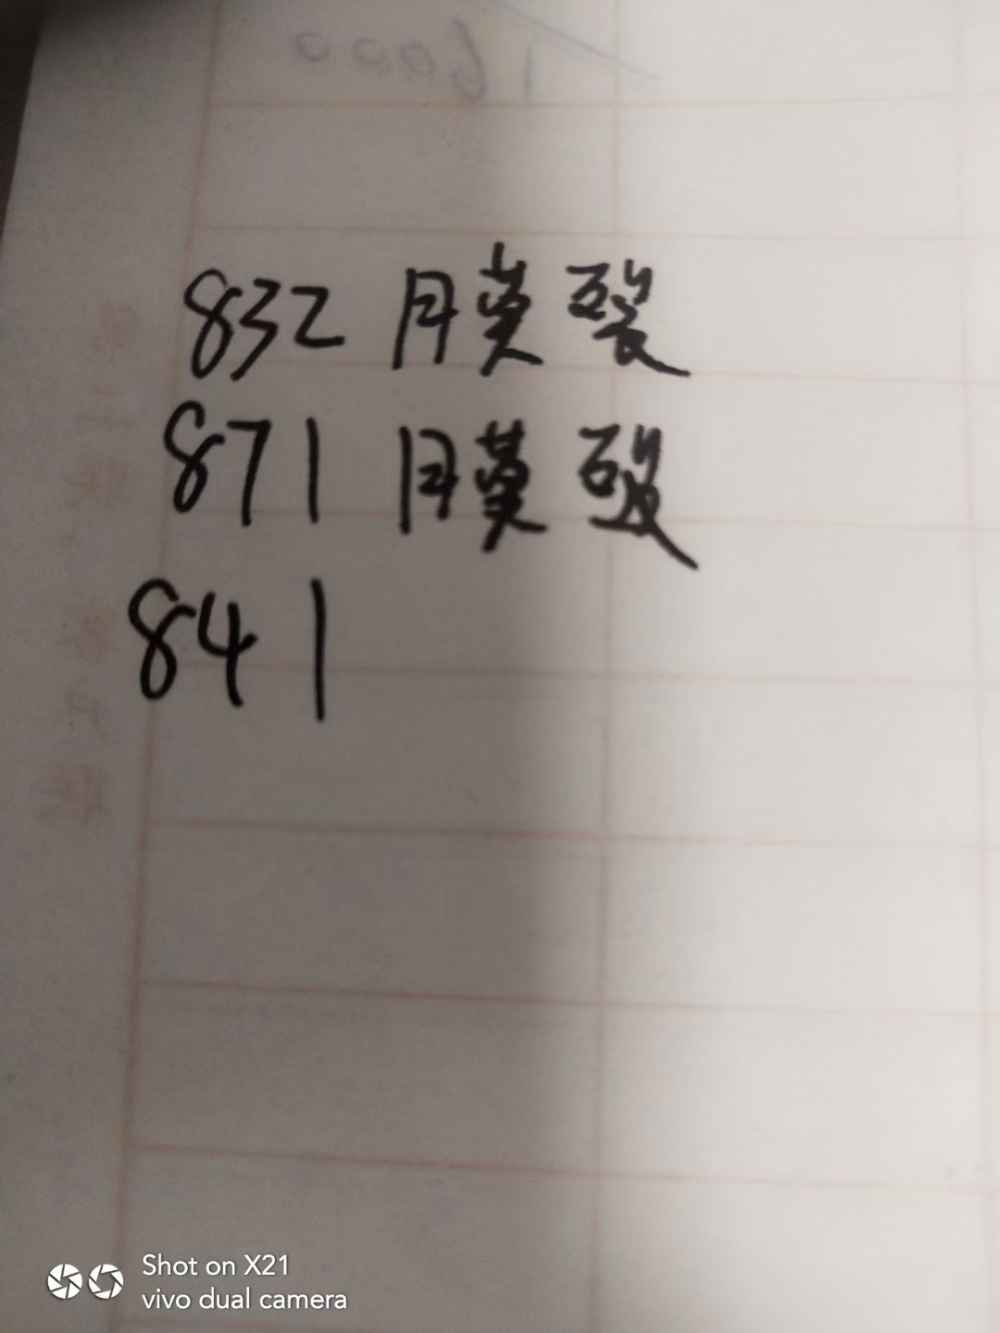 16000
832 膜裂
871 膜破
841
Shot on X21
vivo dual camera